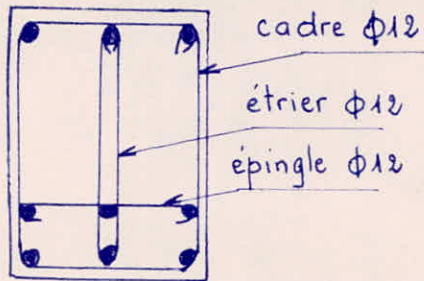 cadre ϕ12
étrier ϕ12
épingle ϕ12